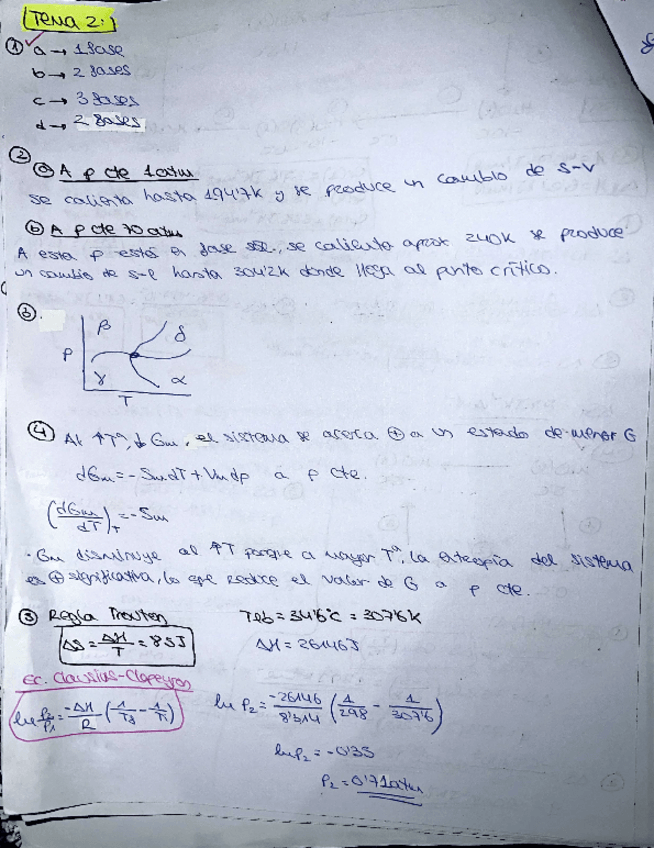 TEMA 2:
① a → 1 fase
b → 2 fases
c → 3 fases
d → 2 fases
②
ⓐ A p cte 1 atm
se calienta hasta 194'7K y se produce un cambio de s-v
ⓑ A p cte 70 atm
A esta p está en fase sól., se calienta aprox 240K se produce
un cambio de s-l hasta 304'2K donde llega al punto crítico.
③.
β
δ
P
γ
α
T
④ Al ↑Tª, ↓ Gm, el sistema se acerca ⊕ a un estado de menor G
dGm = - SmdT + Vmdp a p cte.
(dGm/dT)T = -Sm
· Gm disminuye al ↑T porque a mayor Tª, la entropía del sistema
es ⊕ significativa, lo que reduce el valor de G a p cte.
⑤ Regla Trouton Teb = 34'6ºC = 307'6K
ΔS = ΔH/T = 85J ΔH = 26146J
Ec. Clausius-Clapeyron
ln P2/P1 = -ΔH/R (1/T2 - 1/T1) ln P2 = -26146/8'314 (1/298 - 1/307'6)
lnP2 = -0'33
P2 = 0'71atm